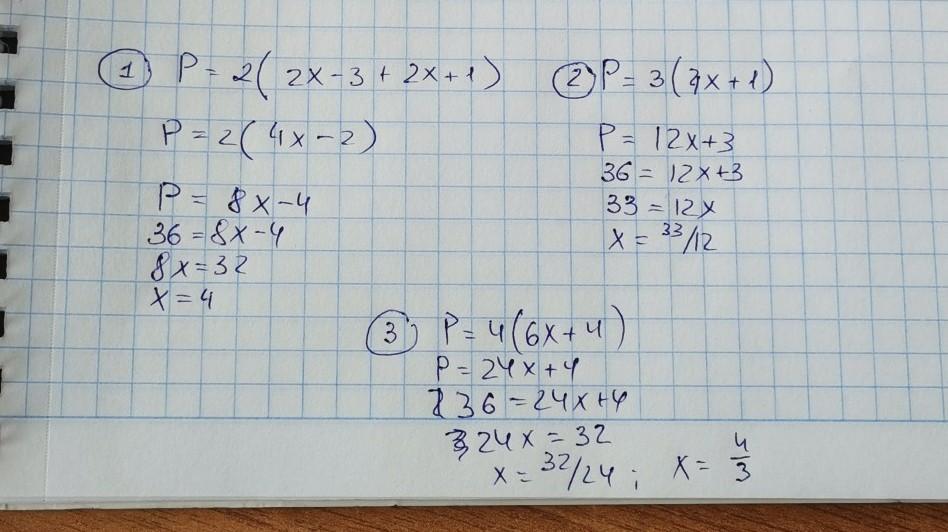 ① P = 2( 2x - 3 + 2x + 1)
P = 2( 4x - 2)
P = 8x - 4
36 = 8x - 4
8x = 32
x = 4
② P = 3(4x + 1)
P = 12x + 3
36 = 12x + 3
33 = 12x
x = 33/12
③ P = 4(6x + 4)
P = 24x + 4
36 = 24x + 4
24x = 32
x = 32/24 ; x = 4/3